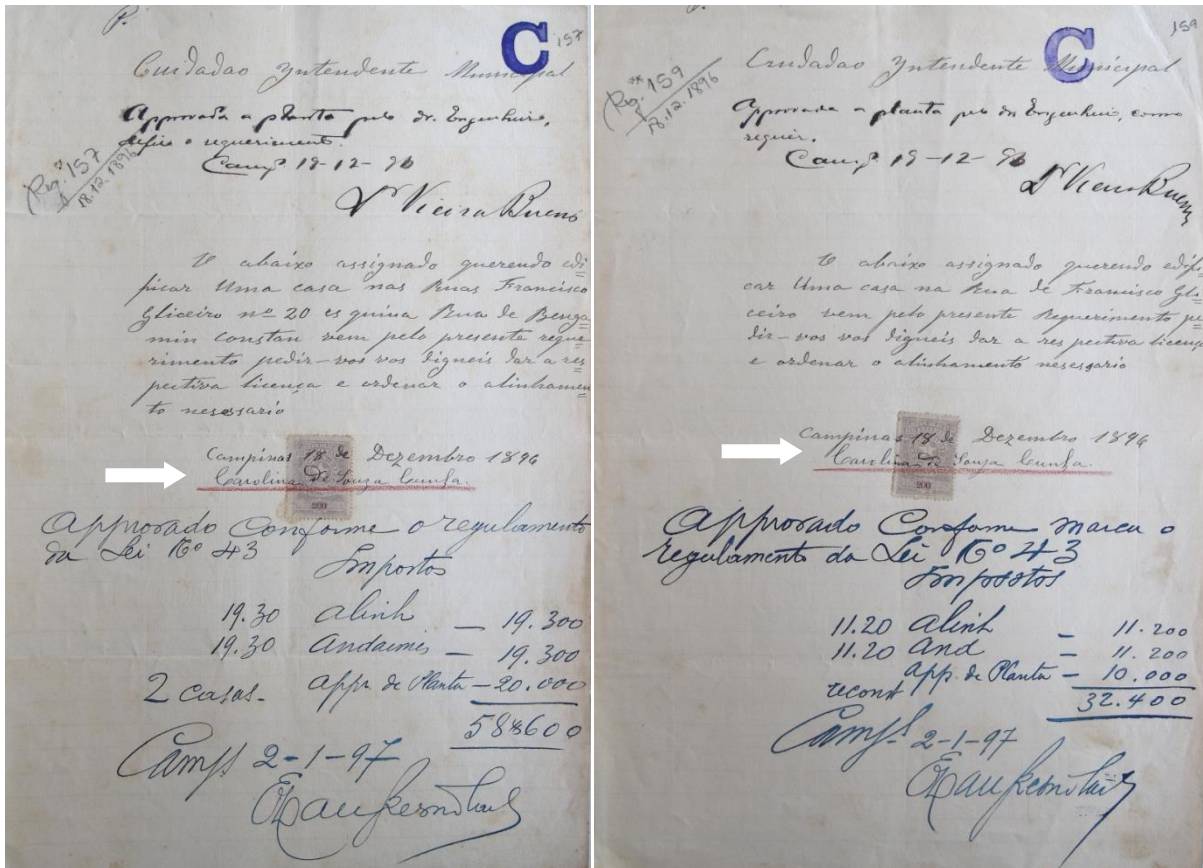 P.
C 157
Cuidadao Yntendente Municipal
Approvada a planta pelo dr. Engenheiro,
defiro o requerimento.
Camps 19-12-96
(Reg. 157
18.12.1896
Dr Vieira Bueno
O abaixo assignado querendo edi=
ficar Uma casa nas Ruas Francisco
Gliceiro nº 20 es quina Rua de Benga
min constan vem pelo presente reque=
rimento pedir-vos vos digneis dar a res=
pectiva licença e ordenar o alinhamen=
to nesessario
Campinas 18 de Dezembro 1896
Carolina de Souza Cunha.
200
Approvado Conforme o regulamento
da Lei Nº 43
Impostos
19.30 Alinh — 19.300
19.30 Andaimes — 19.300
2 casas- app. de Planta — 20.000
58$600
Camps 2-1-97
C 159
Cuidadao Yntendente Municipal
(Reg. 159
18.12.1896
Approvada a planta pelo dr Engenheiro, como
requer.
Camps 19-12-96
Dr Vieira Bueno
O abaixo assignado querendo edifi=
car Uma casa na Rua de Francisco Gli=
ceiro vem pelo presente Requerimento pe=
dir-vos vos digneis dar a res pectiva licença
e ordenar o alinhamento nesessario
Campinas 18 de Dezembro 1896
Carolina de Souza Cunha.
200
Approvado Conforme marca o
regulamento da Lei Nº 43
Impostos
11.20 Alinh — 11.200
11.20 And — 11.200
reconst app. de Planta — 10.000
32.400
Camps 2-1-97